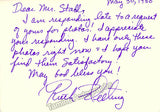 May 30, 1980
Dear Mr. Stadt,
I am responding late to a request
of yours for photos. I appreciate
your responding. I hand out these
photos right now & I hope you
find them satisfactory.
May God bless you!
Ruth Etting